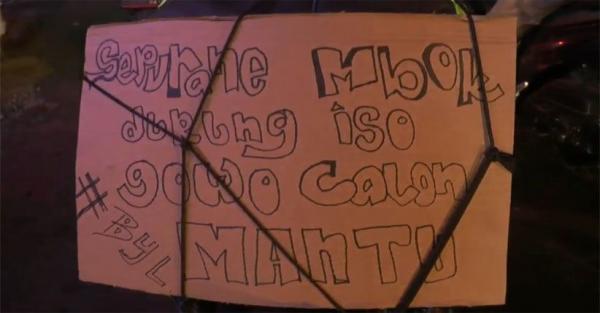 Sepurane Mbok
durung iso
gowo Calon
MANTU
#ByL